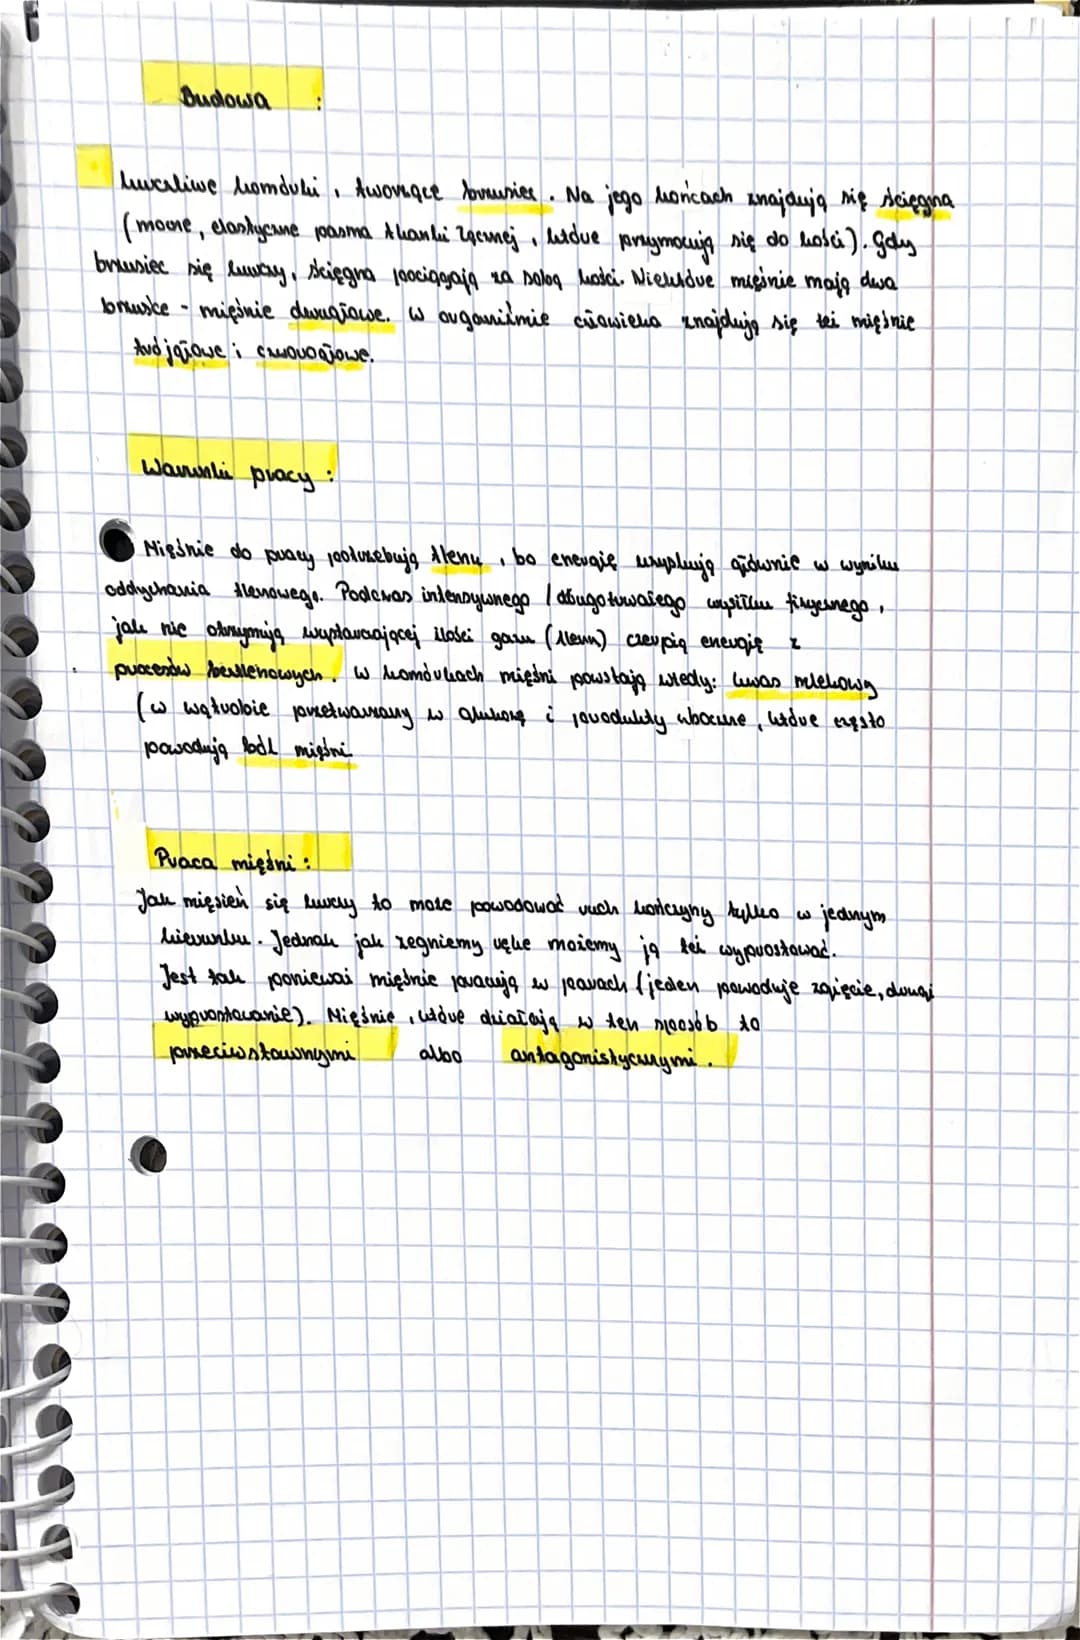 Budowa :
kurczliwe komórki, tworzące brzusiec. Na jego końcach znajdują się ścięgna
(mocne, elastyczne pasma tkanki łącznej, które przymocują się do kości). Gdy
brzusiec się kurczy, ścięgna pociągają za sobą kości. Niektóre mięśnie mają dwa
brzuśce - mięśnie dwugłowe. W organizmie człowieka znajdują się też mięśnie
trójgłowe i czworogłowe.
Warunki pracy :
Mięśnie do pracy potrzebują tlenu, bo energię uzyskują głównie w wyniku
oddychania tlenowego. Podczas intensywnego / długotrwałego wysiłku fizycznego,
jak nie otrzymują wystarczającej ilości gazu (tlenu) czerpią energię z
procesów beztlenowych. W komórkach mięśni powstają wtedy: kwas mlekowy
(w wątrobie przetwarzany w glukozę i produkty uboczne, które często
powodują ból mięśni
Praca mięśni :
Jak mięsień się kurczy to może powodować ruch kończyny tylko w jednym
kierunku. Jednak jak zegniemy rękę możemy ją też wyprostować.
Jest tak ponieważ mięśnie pracują w parach (jeden powoduje zgięcie, drugi
wyprostowanie). Mięśnie, które działają w ten sposób to
przeciwstawnymi albo antagonistycznymi.